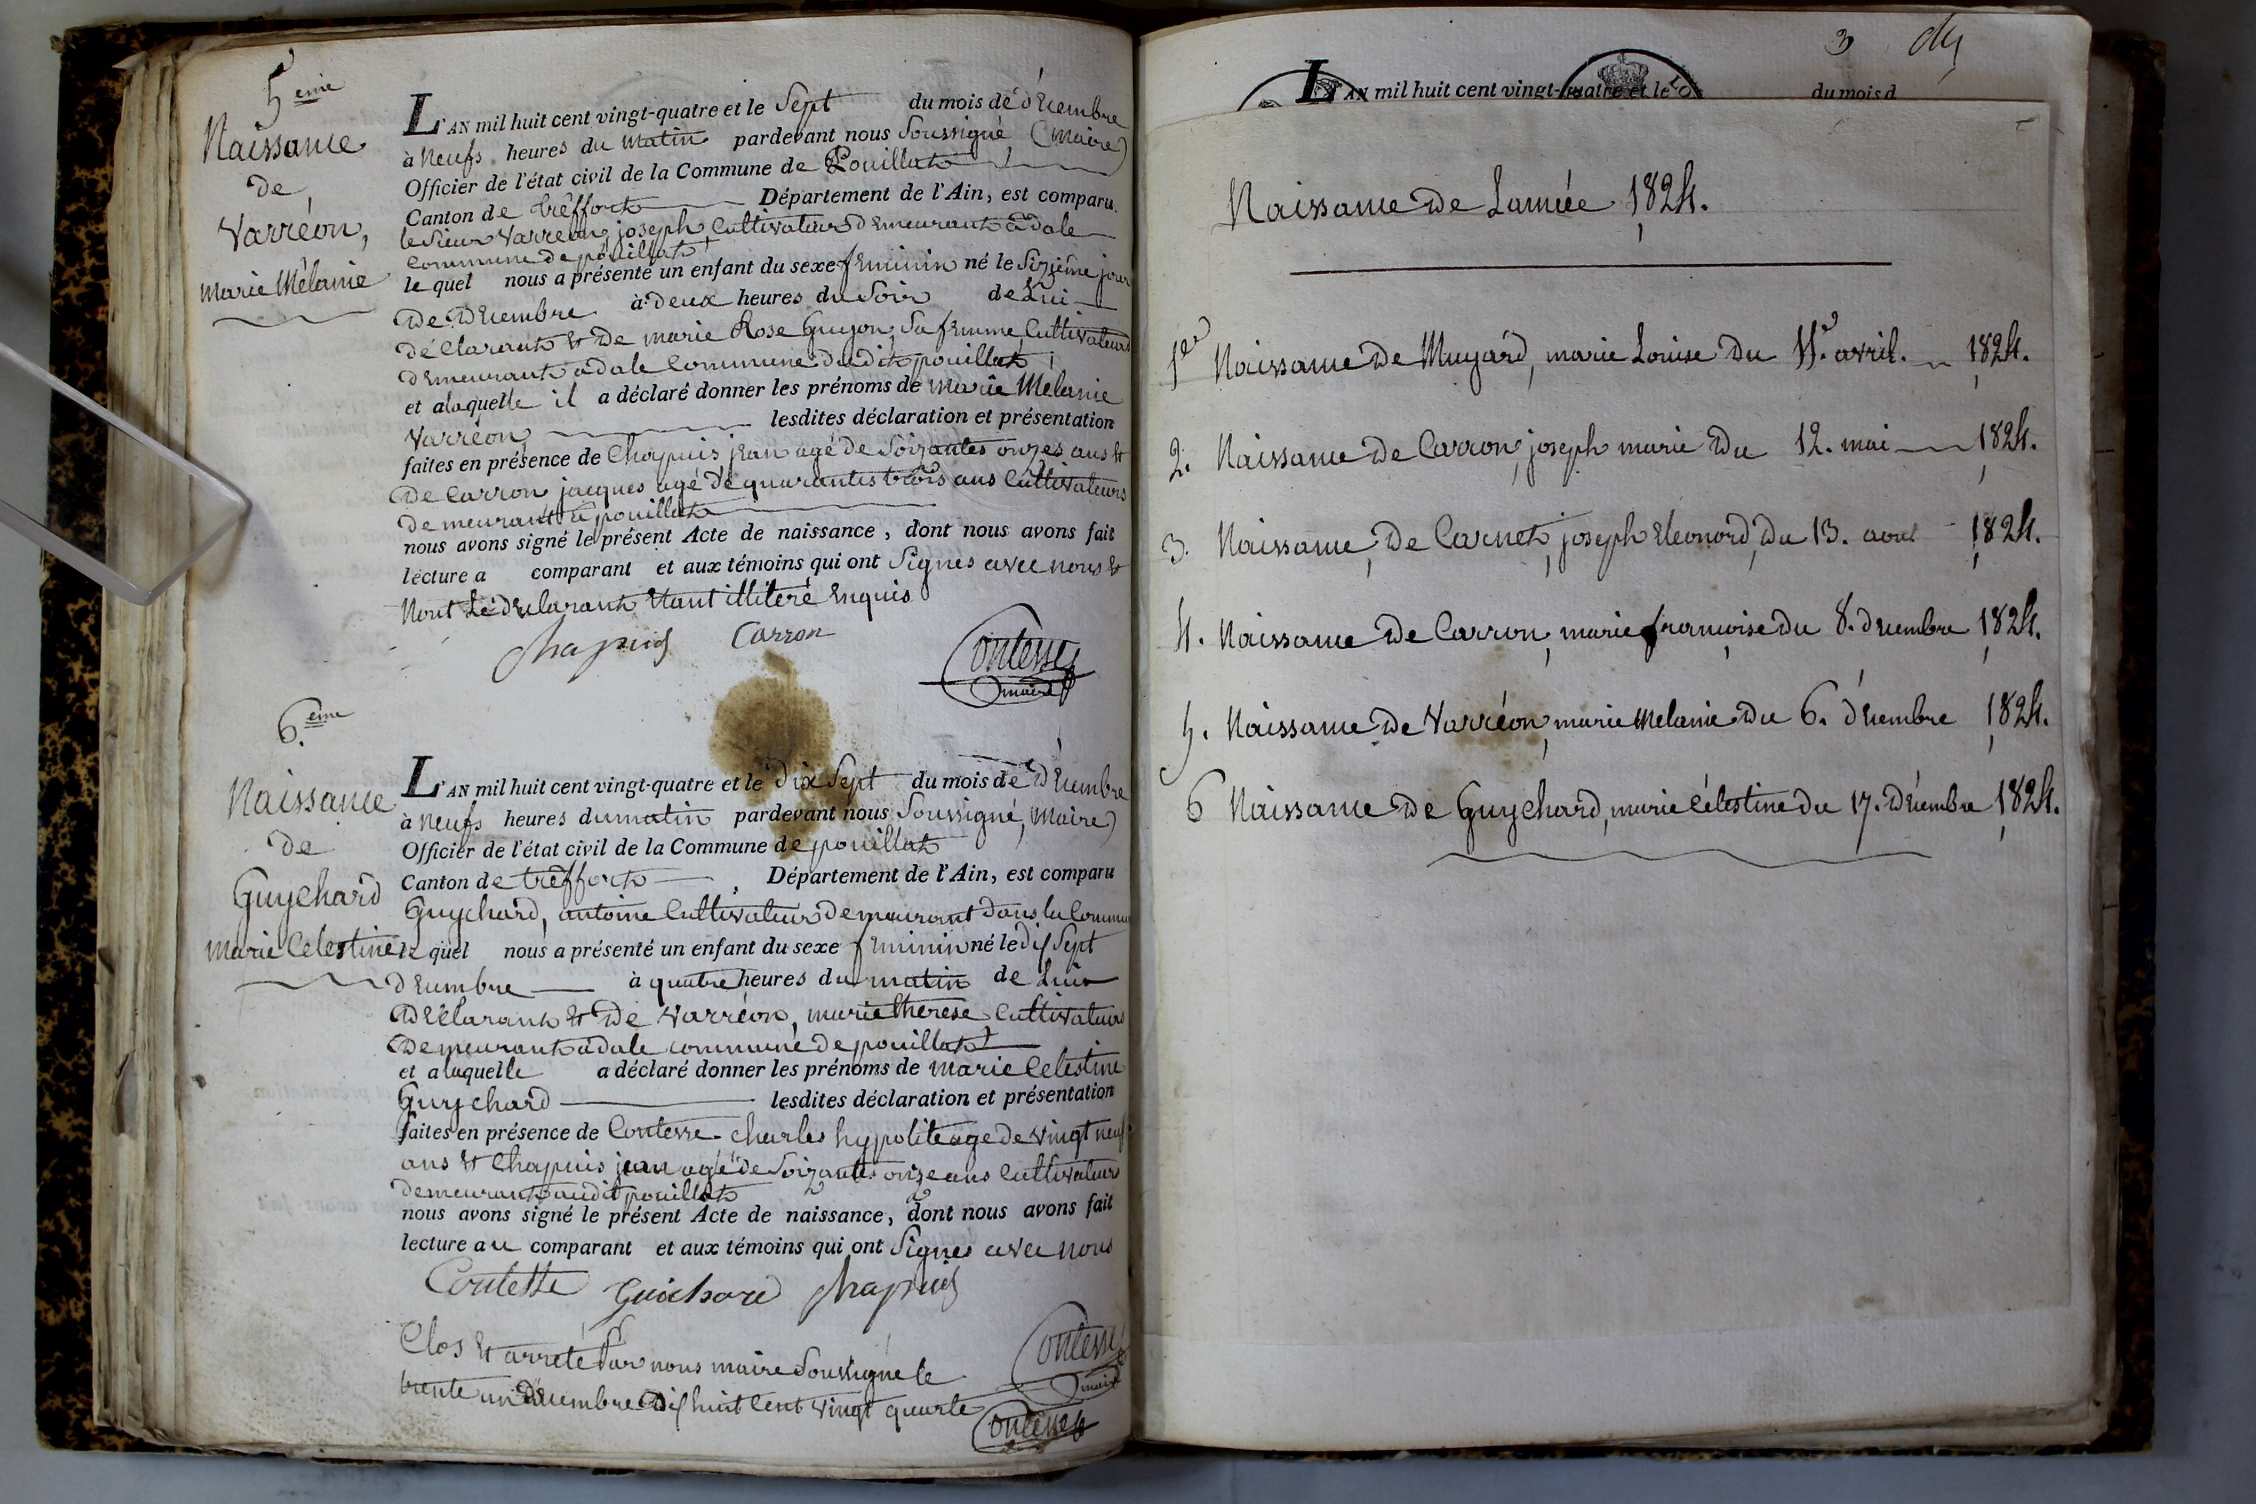 5eme
Naissance
de
Varréon,
marie Mélanie
L'AN mil huit cent vingt-quatre et le Sept du mois de décembre
à Neufs heures du matin pardevant nous Soussigné, (maire)
Officier de l'état civil de la Commune de Pouillat
Canton de trèffort Département de l'Ain, est comparu
le sieur Varréon, joseph Cultivateur demeurant à dale
commune de pouillat
le quel nous a présenté un enfant du sexe feminin né le Sizième jour
de décembre à deux heures du Soir de Lui
déclarant et de marie Rose Guyon, Sa femme Cultivateurs
demeurant à dale Commune dudit pouillat
et a laquelle il a déclaré donner les prénoms de marie Mélanie
Varréon, lesdites déclaration et présentation
faites en présence de Chapuis jean agé de Soizantes onzes ans et
de Carron jacques agé de quarantes trois ans Cultivateurs
demeurant à pouillat
nous avons signé le présent Acte de naissance, dont nous avons fait
lecture a comparant et aux témoins qui ont Signés avec nous et
Nont Le déclarant Etant illitéré Enquis
Chapuis Carron Contesse
maire
6.eme
Naissance
de
Guychard
marie Celestine
L'AN mil huit cent vingt-quatre et le dix Sept du mois de décembre
à Neufs heures du matin pardevant nous Soussigné, Maire)
Officier de l'état civil de la Commune de pouillat
Canton de trèffort , Département de l'Ain, est comparu
Guychard, antoine Cultivateur demeurant dans la Commune
le quel nous a présenté un enfant du sexe feminin né le dix Sept
décembre à quatre heures du matin de Lui
déclarant et de Varréon, marie thérèse Cultivateurs
demeurant à dale commune de pouillat
et a laquelle a déclaré donner les prénoms de marie Celestine
Guychard lesdites déclaration et présentation
faites en présence de Contesse charles hypolite age de vingt neuf
ans et Chapuis jean agé de Soizantes onze ans Cultivateurs
demeurant audit pouillat
nous avons signé le présent Acte de naissance, dont nous avons fait
lecture au comparant et aux témoins qui ont Signés avec nous
Contesse Guichard Chapuis
Contesse
maire
Clos et arrêté Par nous maire Soussigné le
trente un décembre dix huit Cent vingt quatre
Contesse
3
L'AN mil huit cent vingt-quatre et le du mois d
Naissance de Lannée 1824.
1er Naissance de Muyard, marie Louise du 4. avril. 1824.
2. Naissance de Carron, joseph marie du 12. mai 1824.
3. Naissance, de Carnet, joseph Eléonord, du 13. aout 1824.
4. Naissance de Carron, marie françoise du 8. décembre 1824.
5. Naissance de Varréon, marie Mélanie du 6. décembre 1824.
6 Naissance de Guychard, marie Célestine du 17. Décembre 1824.